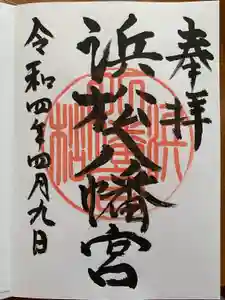 奉拝
浜松八幡宮
令和四年四月九日